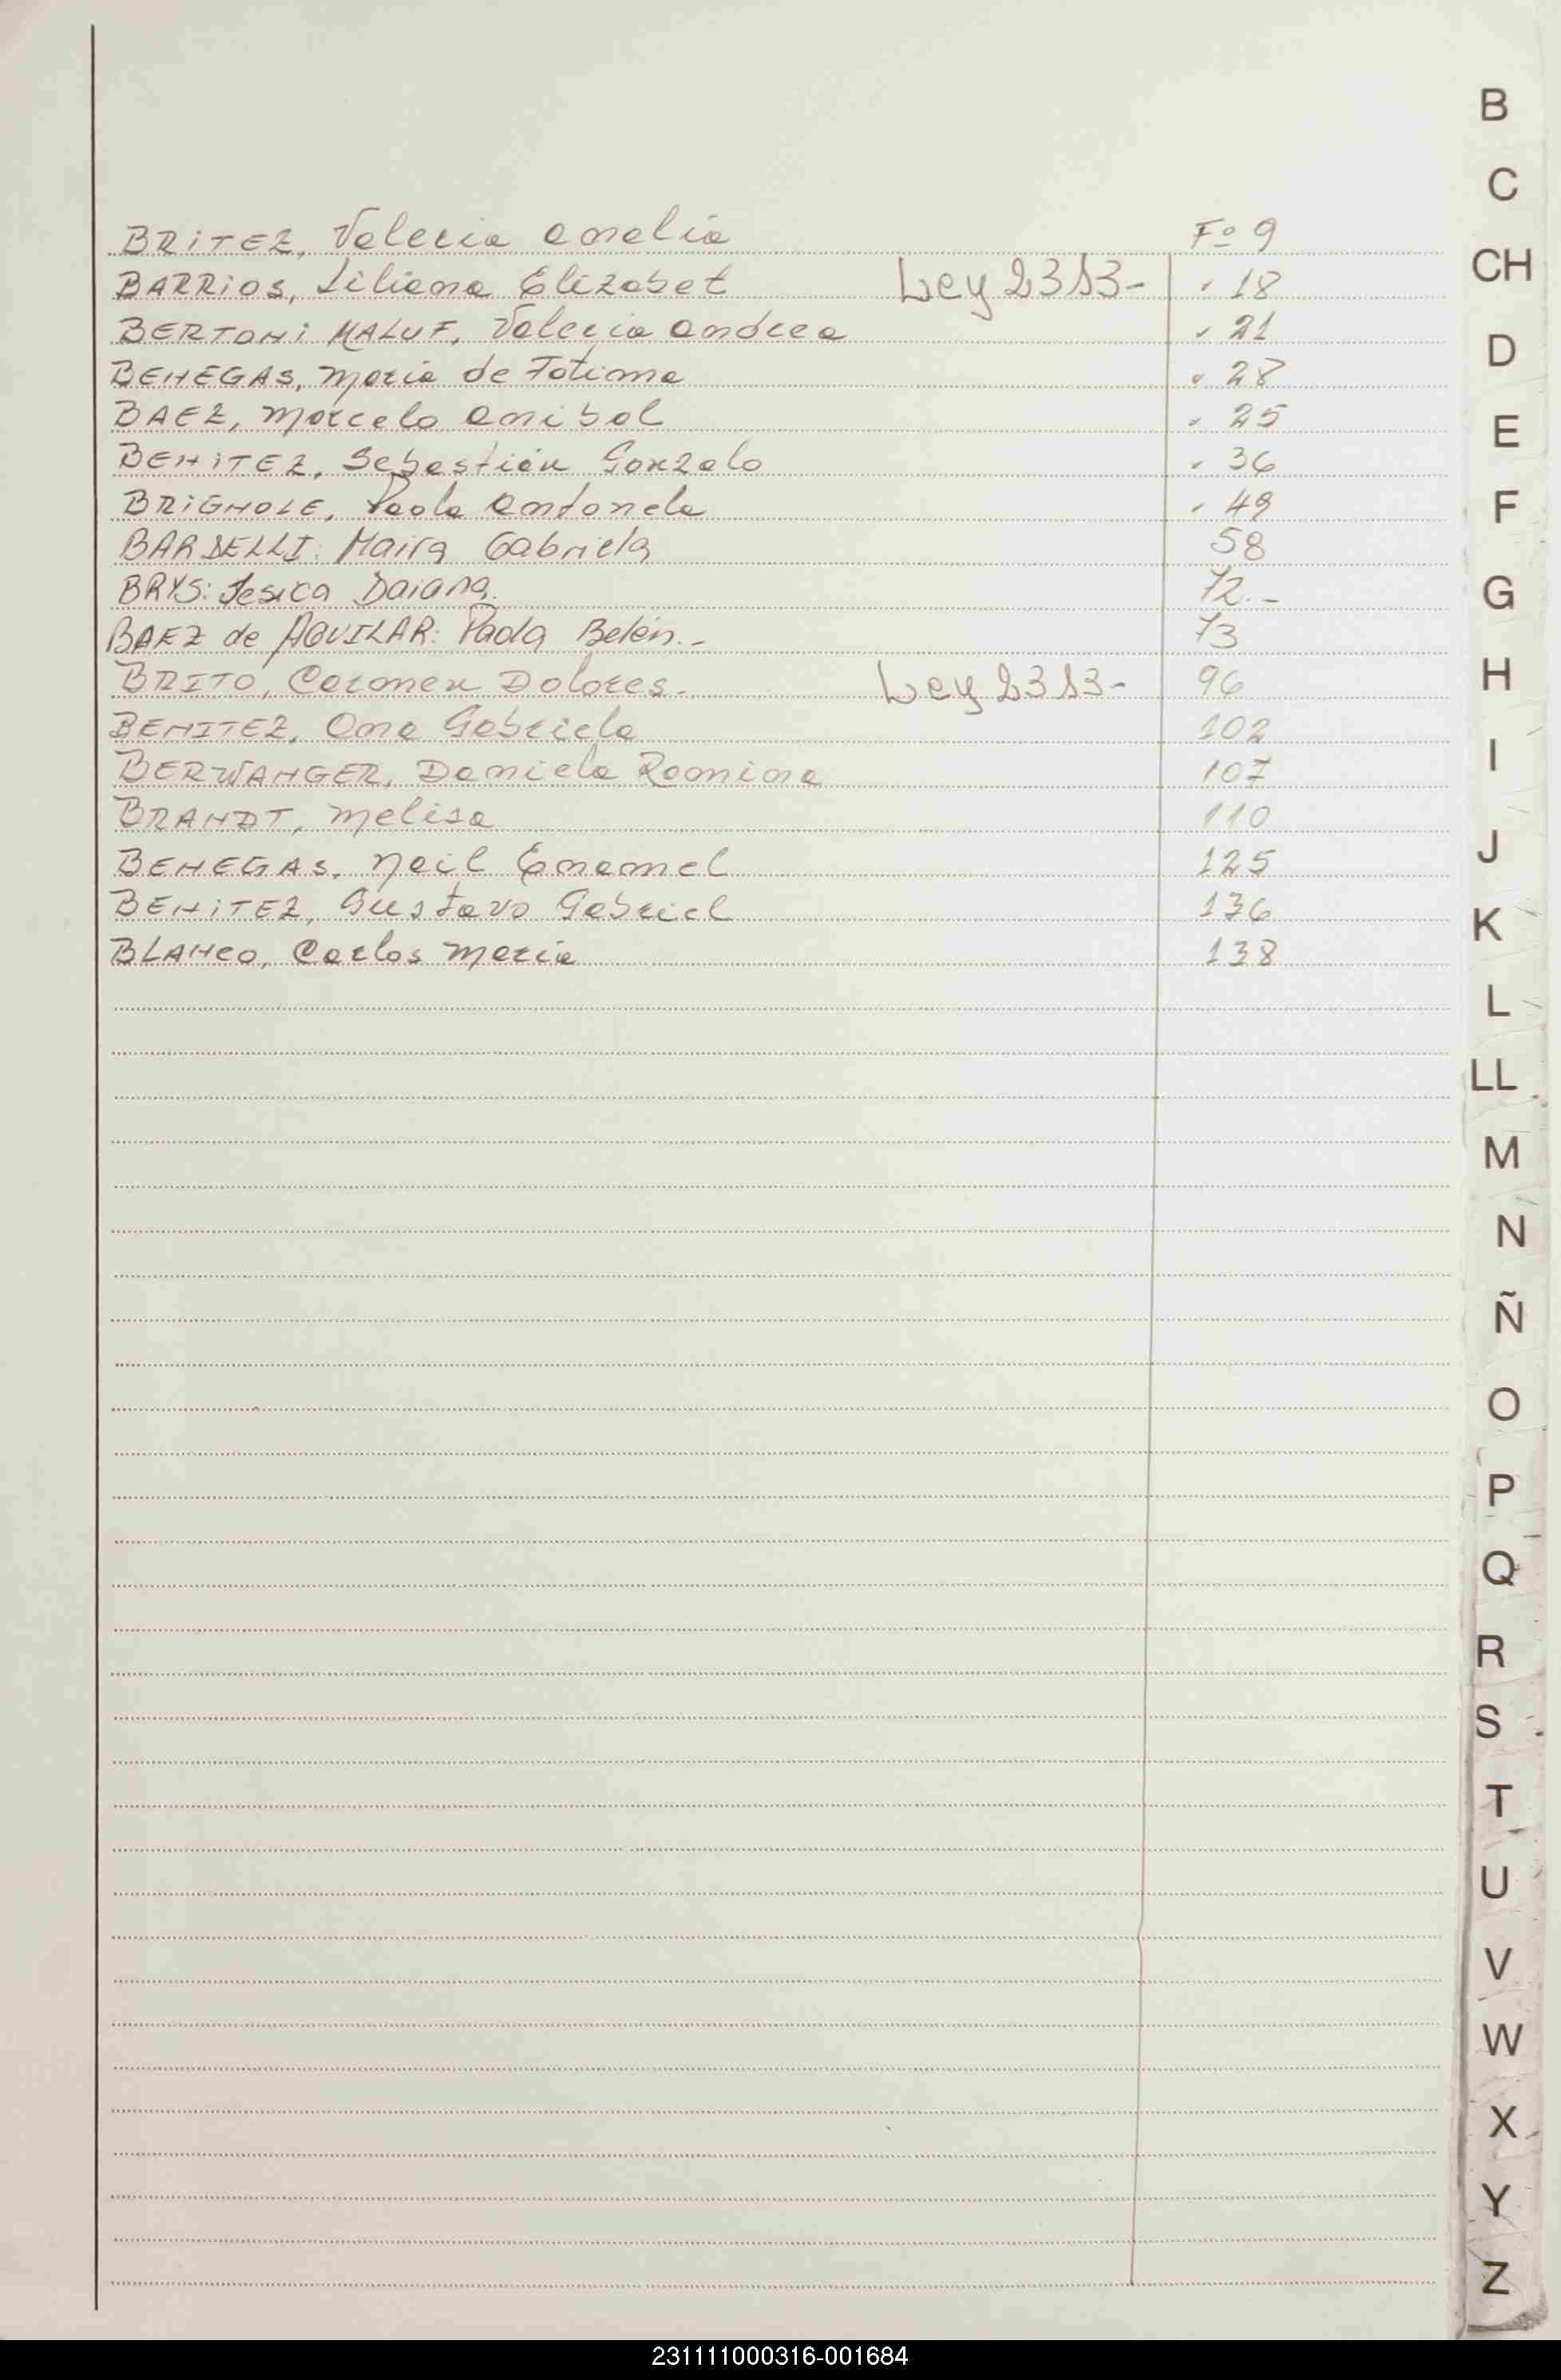 BRITEZ, Valeria Analia Fº 9
BARRIOS, Liliana Elizabet Ley 2313- " 18
BERTONI MALUF, Valeria Andrea " 21
BENEGAS, Maria de Fatima " 28
BAEZ, Marcelo Anibal " 25
BENITEZ, Sebastián Gonzalo " 36
BRIGNOLE, Paola Antonela " 49
BARDELLI: Maira Gabriela 58
BRYS: Jesica Daiana. 72.-
BAEZ de AGUILAR: Paola Belén.- 73
BRITO, Carmen Dolores- Ley 2313- 96
BENITEZ, Ana Gabriela 102
BERWANGER, Daniela Romina 107
BRANDT, Melisa 110
BENEGAS, Neil Emanuel 125
BENITEZ, Gustavo Gabriel 136
BLANCO, Carlos María 138
B
C
CH
D
E
F
G
H
I
J
K
L
LL
M
N
Ñ
O
P
Q
R
S
T
U
V
W
X
Y
Z
231111000316-001684